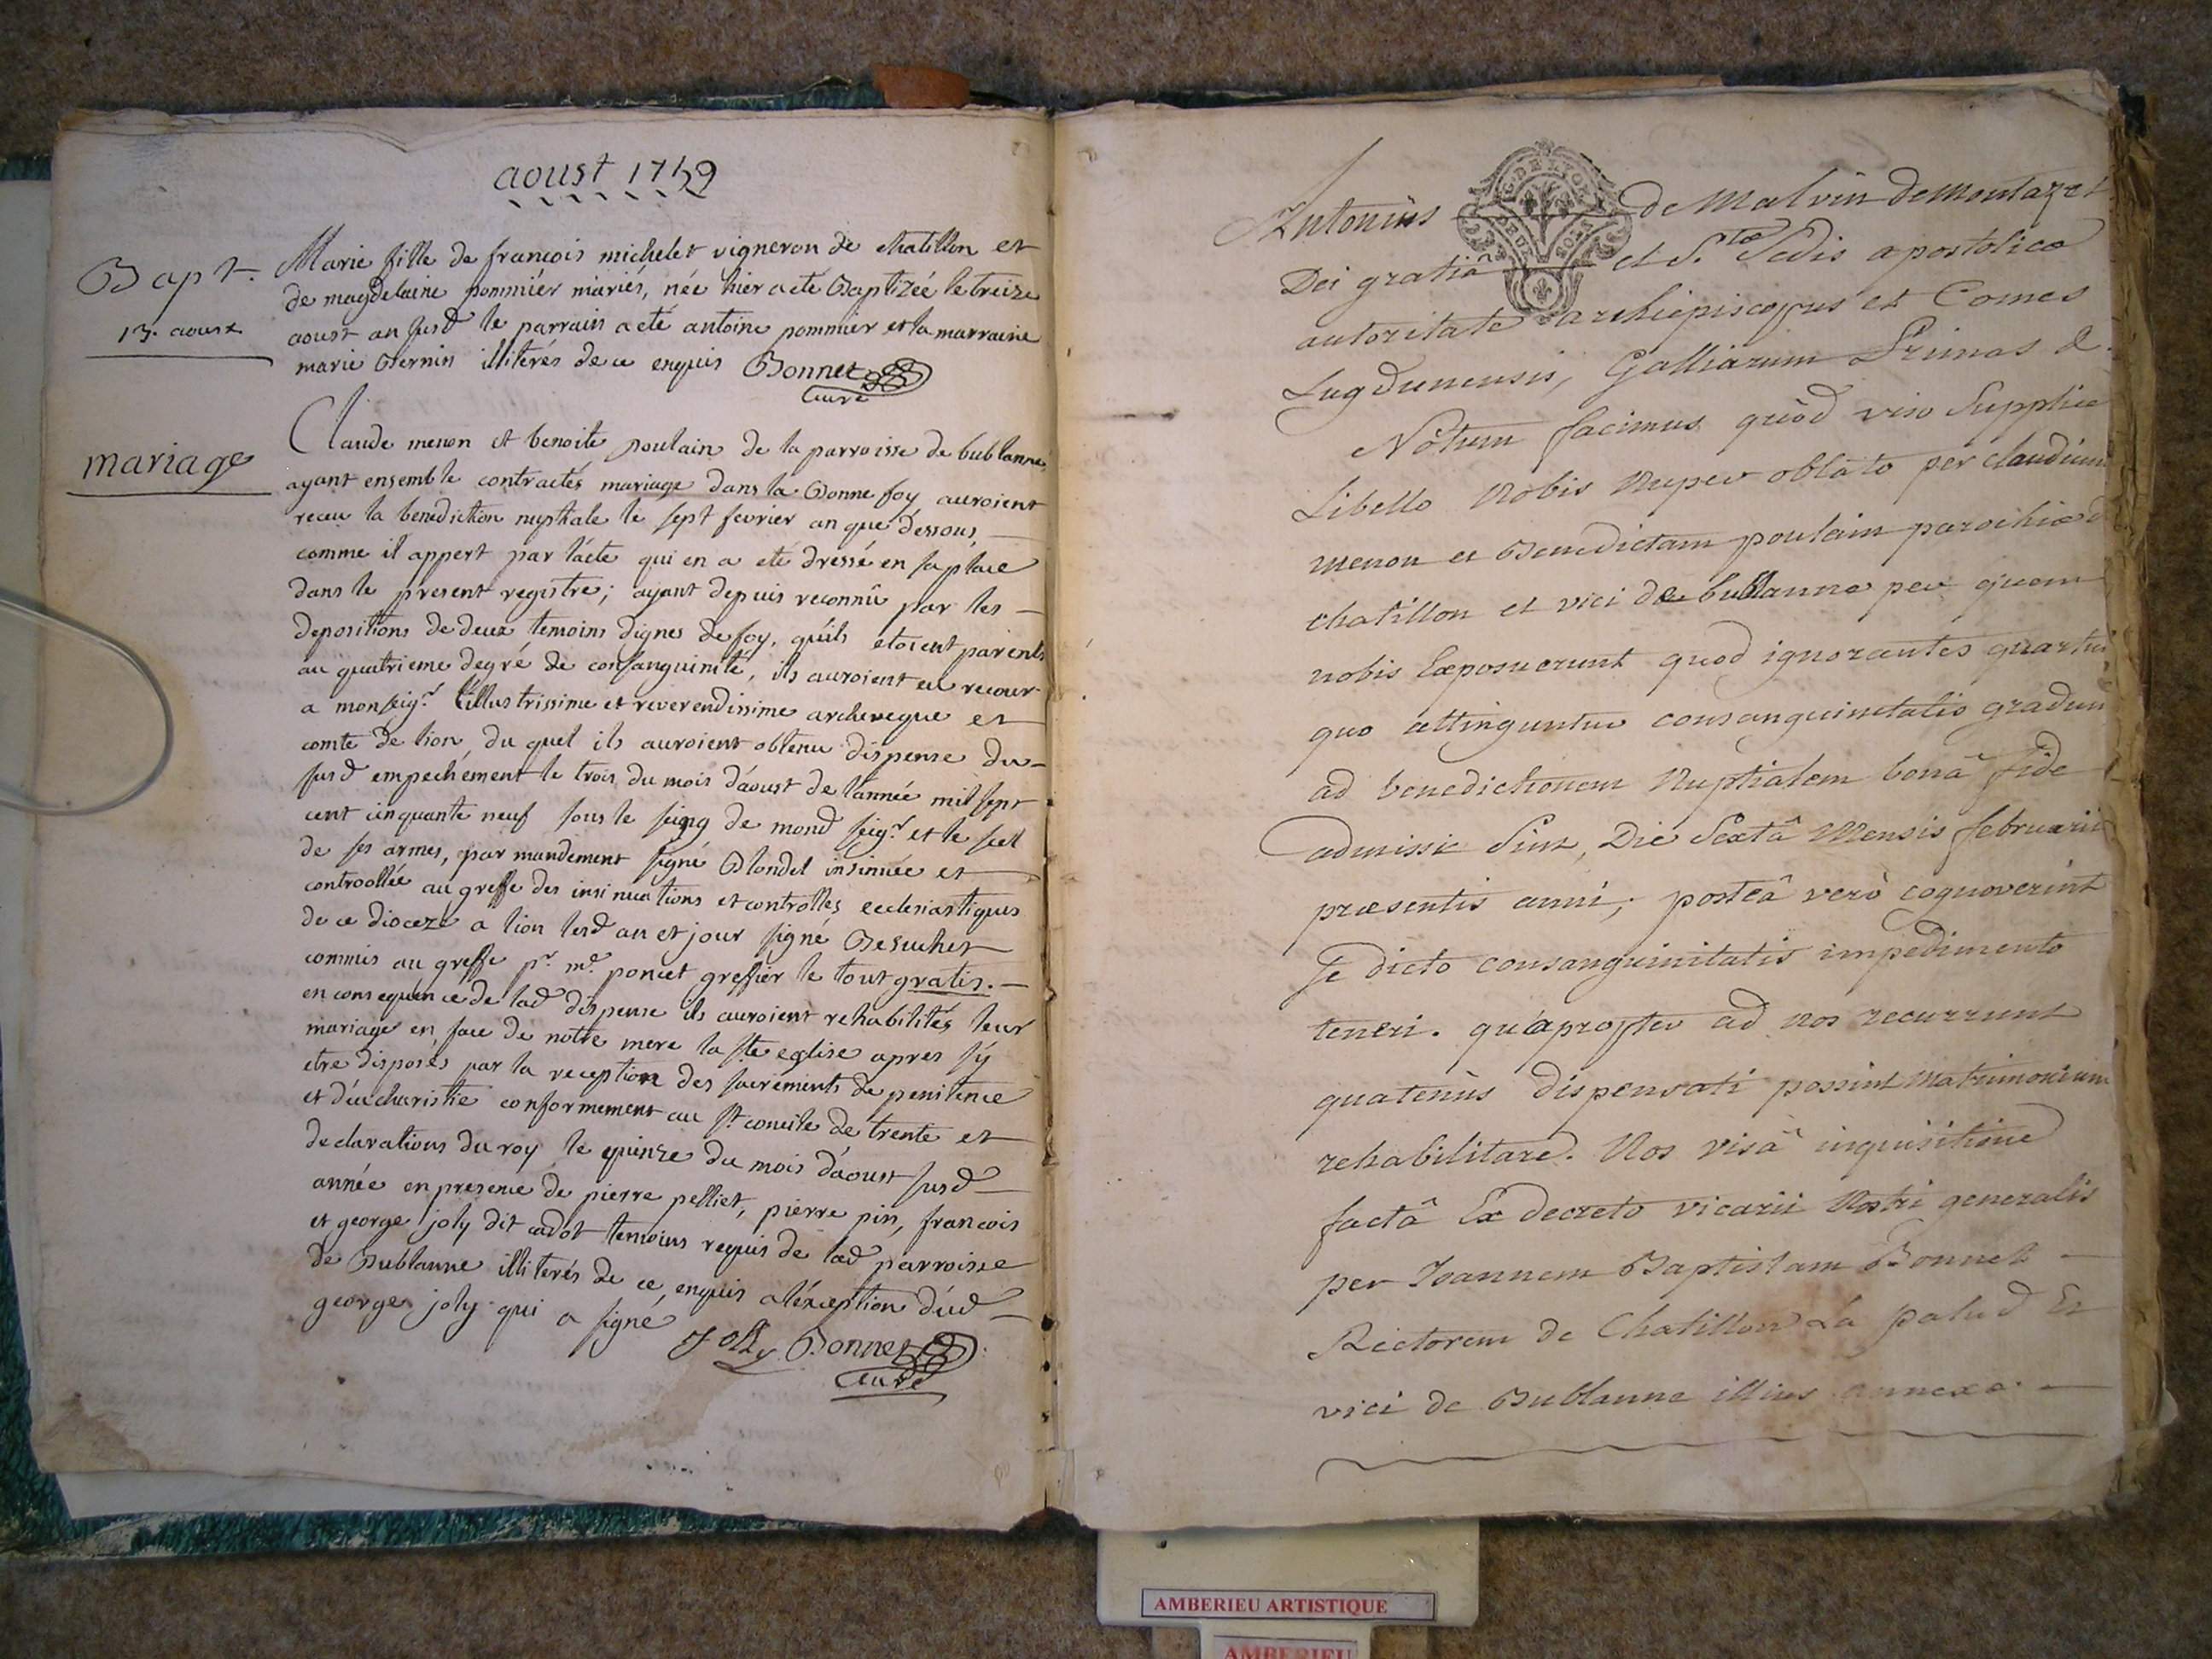 aoust 1759
Bapt.
13. aoust
Marie fille de francois michelet vigneron de chatillon et
de magdelaine pommiér mariés, née hier a eté Baptizée le treize
aoust an susd le parrain a eté antoine pommier et la marraine
marie Bernin illiterés de ce enquis Bonnet
Curé
mariage
Claude menon et benoite poulain de la parroisse de bublanne
ayant ensemble contractés mariage dans la Bonne foy auroient
receu la benediction nuptiale le sept fevrier an que dessous,
comme il appert par l'acte qui en a eté dressé en sa place
dans le present registre; ayant depuis reconnû par les
depositions de deux temoins dignes de foy, qu'ils etoient parents
au quatrieme degré de consanguinité, ils auroient eu recour
a monseigr. l'illustrissime et reverendissime archeveque et
comte de lion, du quel ils auroient obtenu dispense du
susd empechement le trois du mois d'aoust de l'année mil sept
cent cinquante neuf sous le seing de mond seigr. et le scel
de ses armes, par mandement signé Blondel insinuée et
controollée au greffe des insinuations et controlles ecclesiastiques
de ce dioceze a lion lesd an et jour signé Besuchet
commis au greffe pr. mr. poncet greffier le tout gratis.
en consequence de lad dispense ils auroient rehabilités leur
mariage en face de notre mere la ste eglise apres s'y
etre disposés par la reception des sacrements de penitence
et d'eucharistie conformement au st. concile de trente et
declarations du roy le quinze du mois d'aoust susd
année en presence de pierre pelliet, pierre pin, francois
et george joly dit cadot temoins requis de lad parroisse
de Bublanne illiterés de ce enquis a l'exception dud
george joly qui a signé
Jolly Bonnet
Curé
Antonius de Malvin de Montazet
G. DE LYON
Dei gratiâ et S.tæ Sedis apostolicæ
autoritate archiepiscopus et Comes
Lugdunensis, Galliarum Primas &.
Nôtum facimus quòd viso Supplice
Libello Nobis Nuper oblato per claudium
menon et Benedictam poulain parochiæ d
chatillon et vici de bublanne per quem
nobis Exposuerunt quod ignorantes quartum
quo attinguntur consanguinitatis gradum
ad benedictionem Nuptialem bonâ fide
admissi Sint, Die Sextâ Mensis februarii
præsentis anni; posteâ verò cognoverint
Se dicto consanguinitatis impedimento
teneri. quapropter ad nos recurrunt
quatenùs dispensati possint Matrimonium
rehabilitare. Nos visâ inquisitione
factâ Ex decreto vicarii Nostri generalis
per Joannem Baptistam Bonnet
Rectorem de Chatillon La palud Et
vici de Bublanne illius annexæ.
AMBERIEU ARTISTIQUE
AMBERIEU